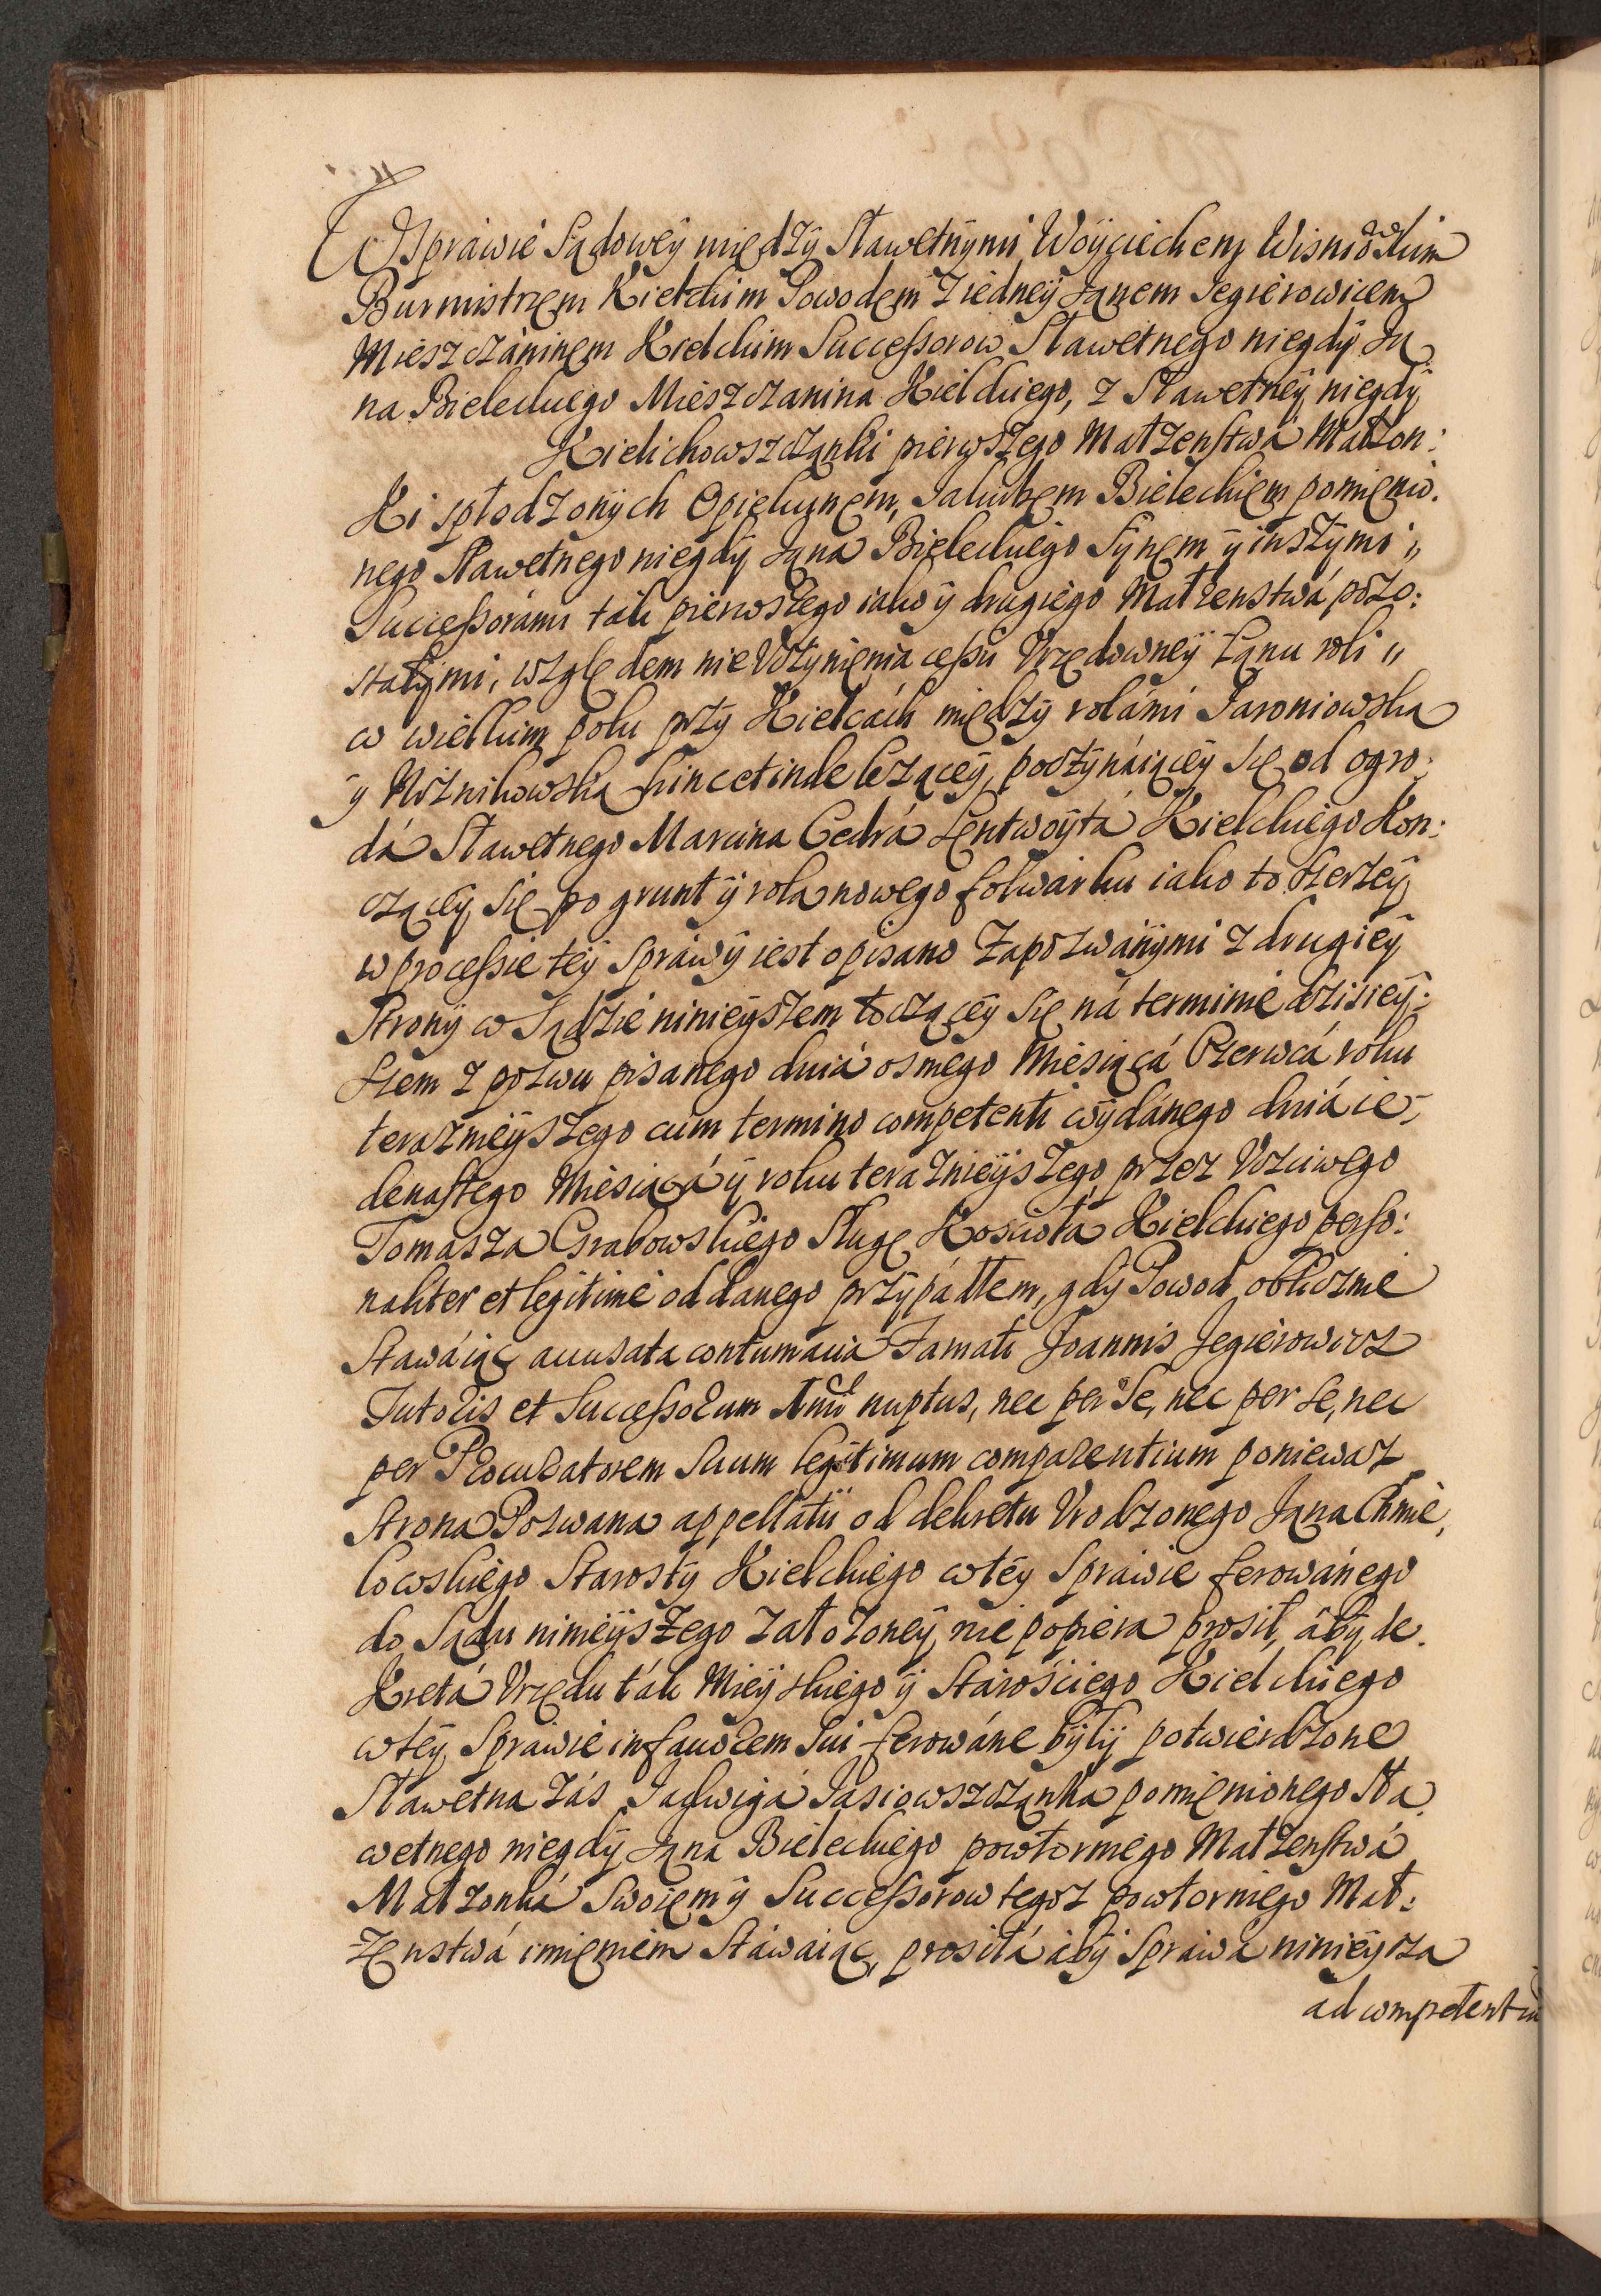 W Spráwie Sądowey między Sławetnymi Woyciechem Wisniowskim
Burmistrzem Kielckim Powodem z iedney Janem Jegierowicem
Mieszczáninem Kielckim Successorow Sławetnego niegdy Ja
na Bieleckiego Mieszczanina Kielckiego, z Sławetney niegdy
Kielichowszczanki pierwszego Małzenstwá Małzon:
Ki spłodzonych Opiekunem, Jakubem Bieleckiem pomienio.
nego Sławetnego niegdy Jana Bieleckiego Synem y inszymi „
Successorámi ták pierwszego iako y drugiego Małzenstwá pozo:
stałymi, względem nie Vczynienia cessii Vrzędowney Łanu roli „
w wielkim polu przy Kielcách między rolámi Jaroniowska
y Niznikowska hinc et inde lezącey, poczynáiącey się od ogro:
dá Sławetnego Marcina Cedrá Lentwoytá Kielckiego Kon:
czącey się po grunt y rola nowego folwarku iako to szerzey
w processie tey spráwy iest opisano Zapozwánymi z drugiey
Strony w Sądzie ninieyszem toczącey się ná terminie dzisiey:
szem z pozwu pisanego dniá osmego Miesiącá Czerwcá roku
teraznieyszego cum termino competenti wydánego dniá ie-
denastego Miesiącá y roku teraznieyszego przez Vczciwego
Tomasza Grabowskiego Sługę Kosciołá Kielckiego perso:
naliter et legitime oddanego przypádłem, gdy Powod oblicznie
Stawáiąc accusata contumacia Famati Joannis Jegierowicz
Tutoris et Successorum nuptus, nec per Se, nec per se, nec
per Procuratorem Suum legitimum comparentium poniewaz
Strona Pozwana appellatii od dekretu Vrodzonego Jana Chmie,
lowskiego Starosty Kielckiego w tey Spráwie ferowánego
do Sądu ninieyszego załozoney, nie popiera prosił, áby de.
Kretá Vrzędu ták Mieyskiego y Stárościego Kielckiego
w tey Spráwie in favorem Sui ferowáne były potwierdzone
Sławetna zás Jadwigá Jasiowszczanka pomienionego Sła
wetnego niegdy Jana Bieleckiego powtornego Małzenstwá
Małzonká Swoiem y Successorow tegoz powtornego Mał:
zenstwá imieniem Stáwaiąc, prosiłá áby Spráwá ninieysza
ad competent